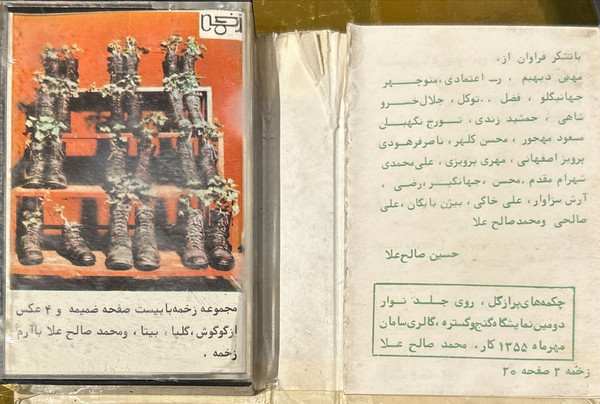 زخمه
مجموعه زخمه با بیست صفحه ضمیمه و ۴ عکس
از گوگوش، گلپا، بیتا، ومحمد صالح علا با آرم
زخمه .
باتشکر فراوان از،
مهین دیهیم ، ر_ اعتمادی،منوچهر
جهانبگلو ، فضل ، .توکل ، جلال خسرو
شاهی ، جمشید زندی، تورج نگهبان
مسعود مهجور ، محسن کلهر، ناصرفرهودی
پرویز اصفهانی ، مهری پرویزی، علی‌محمدی
شهرام مقدم .محسن ،جهانگیر،رضی ،
آرش سزاوار، علی خاکی، بیژن بایگان، علی
صالحی ومحمدصالح علا
حسین صالح علا
چکمه‌های پراز گل ، روی جلد نوار
دومین نمایشگاه‌گنج‌وگستره، گالری سامان
مهرماه ۱۳۵۵ کار، محمد صالح علا
زخمه ۲ صفحه ۲۰